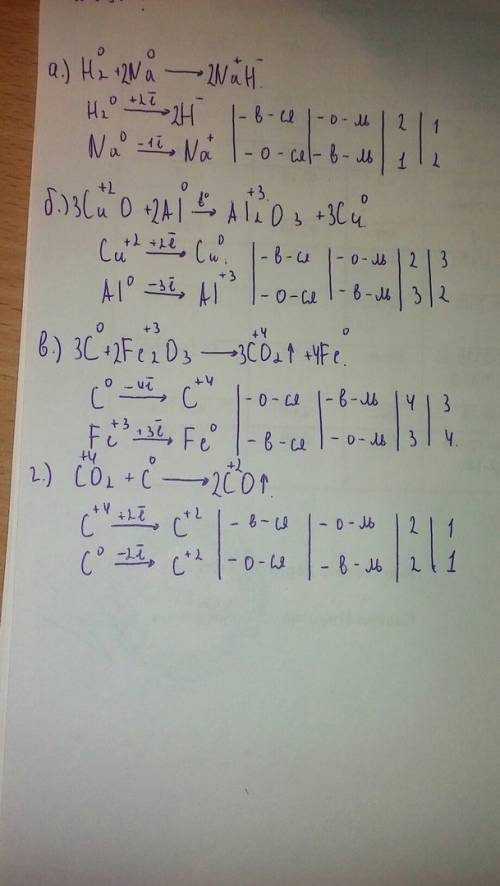 а.) H₂⁰ + 2Na⁰ ⟶ 2Na⁺H⁻.
H₂⁰ +2ē⟶ 2H⁻ | - в-ся | - о-ль | 2 | 1
Na⁰ -1ē⟶ Na⁺ | - о-ся | - в-ль | 1 | 2
б.) 3Cu⁺²O + 2Al⁰ t⁰⟶ Al₂⁺³O₃ + 3Cu⁰.
Cu⁺² +2ē⟶ Cu⁰. | - в-ся | - о-ль | 2 | 3
Al⁰ -3ē⟶ Al⁺³ | - о-ся | - в-ль | 3 | 2
в.) 3C⁰ + 2Fe₂⁺³O₃ ⟶ 3C⁺⁴O₂↑ + 4Fe⁰.
C⁰ -4ē⟶ C⁺⁴ | - о-ся | - в-ль | 4 | 3
Fe⁺³ +3ē⟶ Fe⁰ | - в-ся | - о-ль | 3 | 4.
г.) C⁺⁴O₂ + C⁰ ⟶ 2C⁺²O↑.
C⁺⁴ +2ē⟶ C⁺² | - в-ся | - о-ль | 2 | 1
C⁰ -2ē⟶ C⁺² | - о-ся | - в-ль | 2 | 1